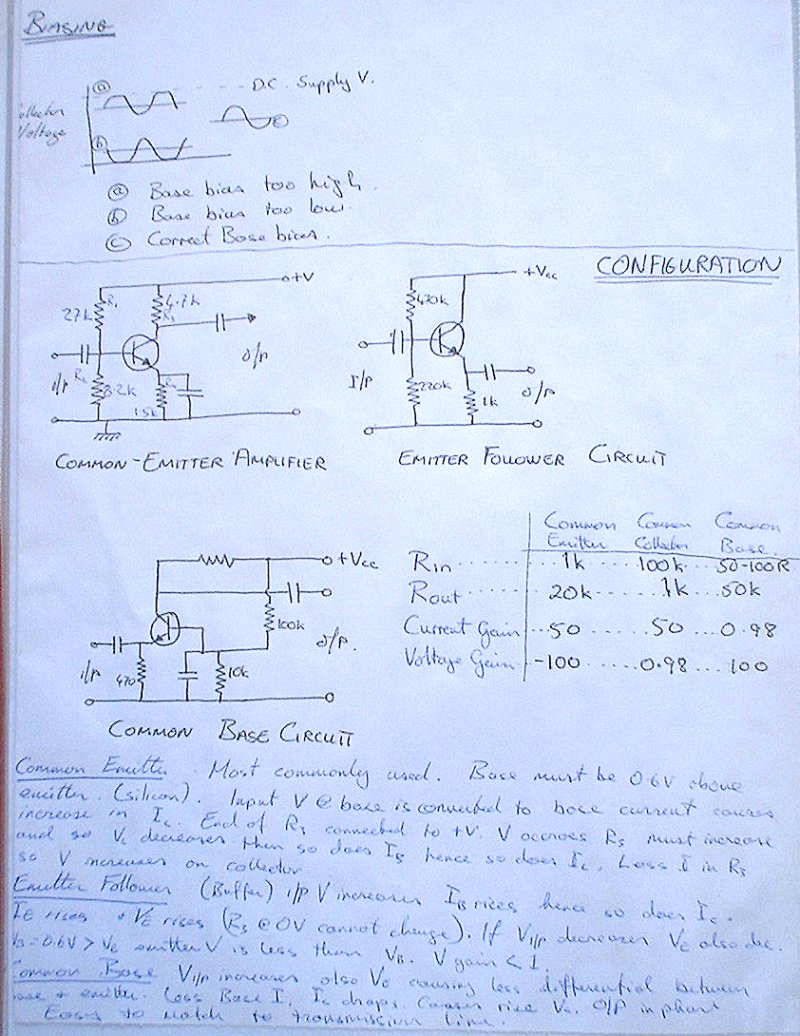 BIASING
D.C. Supply V.
Collector
Voltage
a
c
b
a Base bias too high.
b Base bias too low.
c Correct Base bias.
CONFIGURATION
+V
+Vcc
27k R1
4.7k
470k
R3
I/P
R2
8.2k
1.5k
O/P
I/P
220k
1k
O/P
COMMON-EMITTER AMPLIFIER
EMITTER FOLLOWER CIRCUIT
Common Common Common
Emitter Collector Base.
Rin ...... 1k 100k 50-100R
Rout ...... 20k ...... 1k ... 50k
Current Gain .. 50 ..... 50 ... 0.98
Voltage Gain -100 ..... 0.98 ... 100
+Vcc
100k
O/P.
I/P
470
10k
COMMON BASE CIRCUIT
Common Emitter. Most commonly used. Base must be 0.6V above
emitter. (silicon). Input V @ base is converted to base current causes
increase in Ic. End of R3 connected to +V. V accross R3 must increase
and so Vc decreases then so does IB hence so does Ic. Less I in R3
so V increases on collector
Emitter Follower (Buffer) i/p V increases IB rises hence so does Ic.
IE rises & VE rises (R3 @ 0V cannot change). If Vi/p decreases VE also dec.
VB = 0.6V > VE emitter V is less than VB. V gain < 1
Common Base Vi/p increases also causing less differential between
base + emitter. Less Base I, Ic drops. Causes rise Vc. O/P in phase
Easy to match to transmission line.